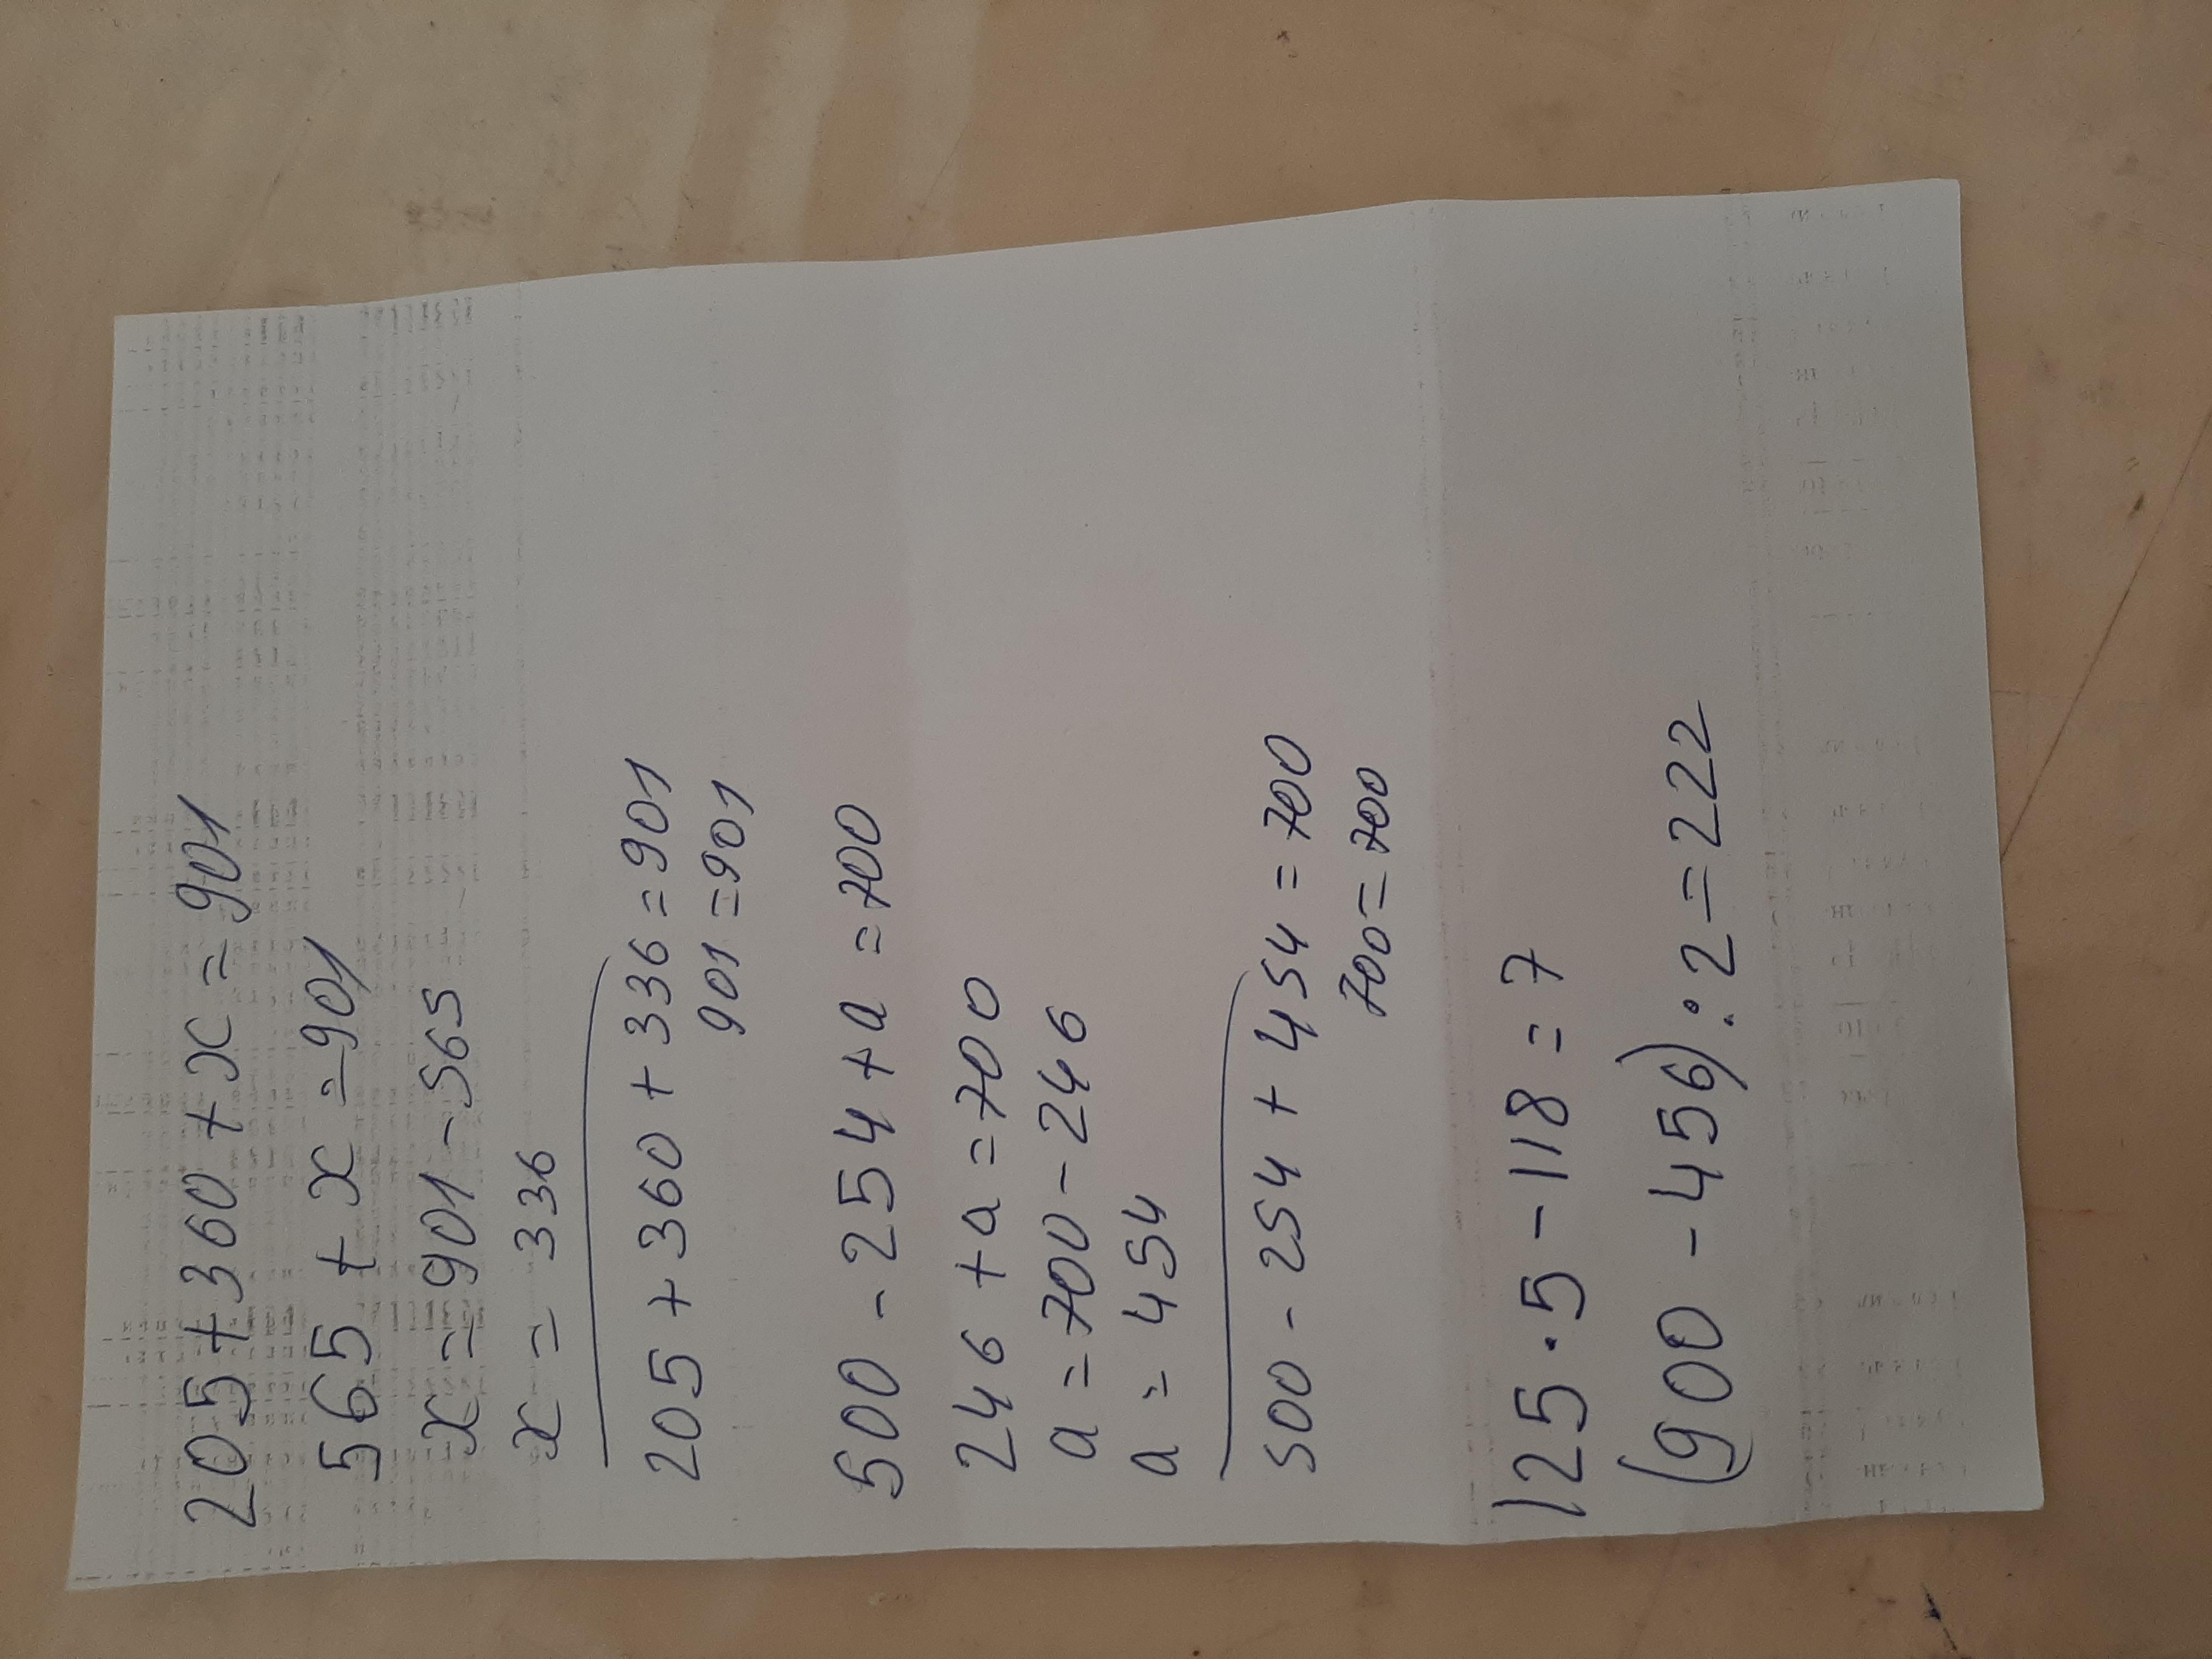 205 + 360 + x = 901
565 + x = 901
x = 901 - 565
x = 336
205 + 360 + 336 = 901
901 = 901
500 - 254 + a = 700
246 + a = 700
a = 700 - 246
a = 454
500 - 254 + 454 = 700
700 = 700
125 · 5 - 118 = 7
(900 - 456) : 2 = 222